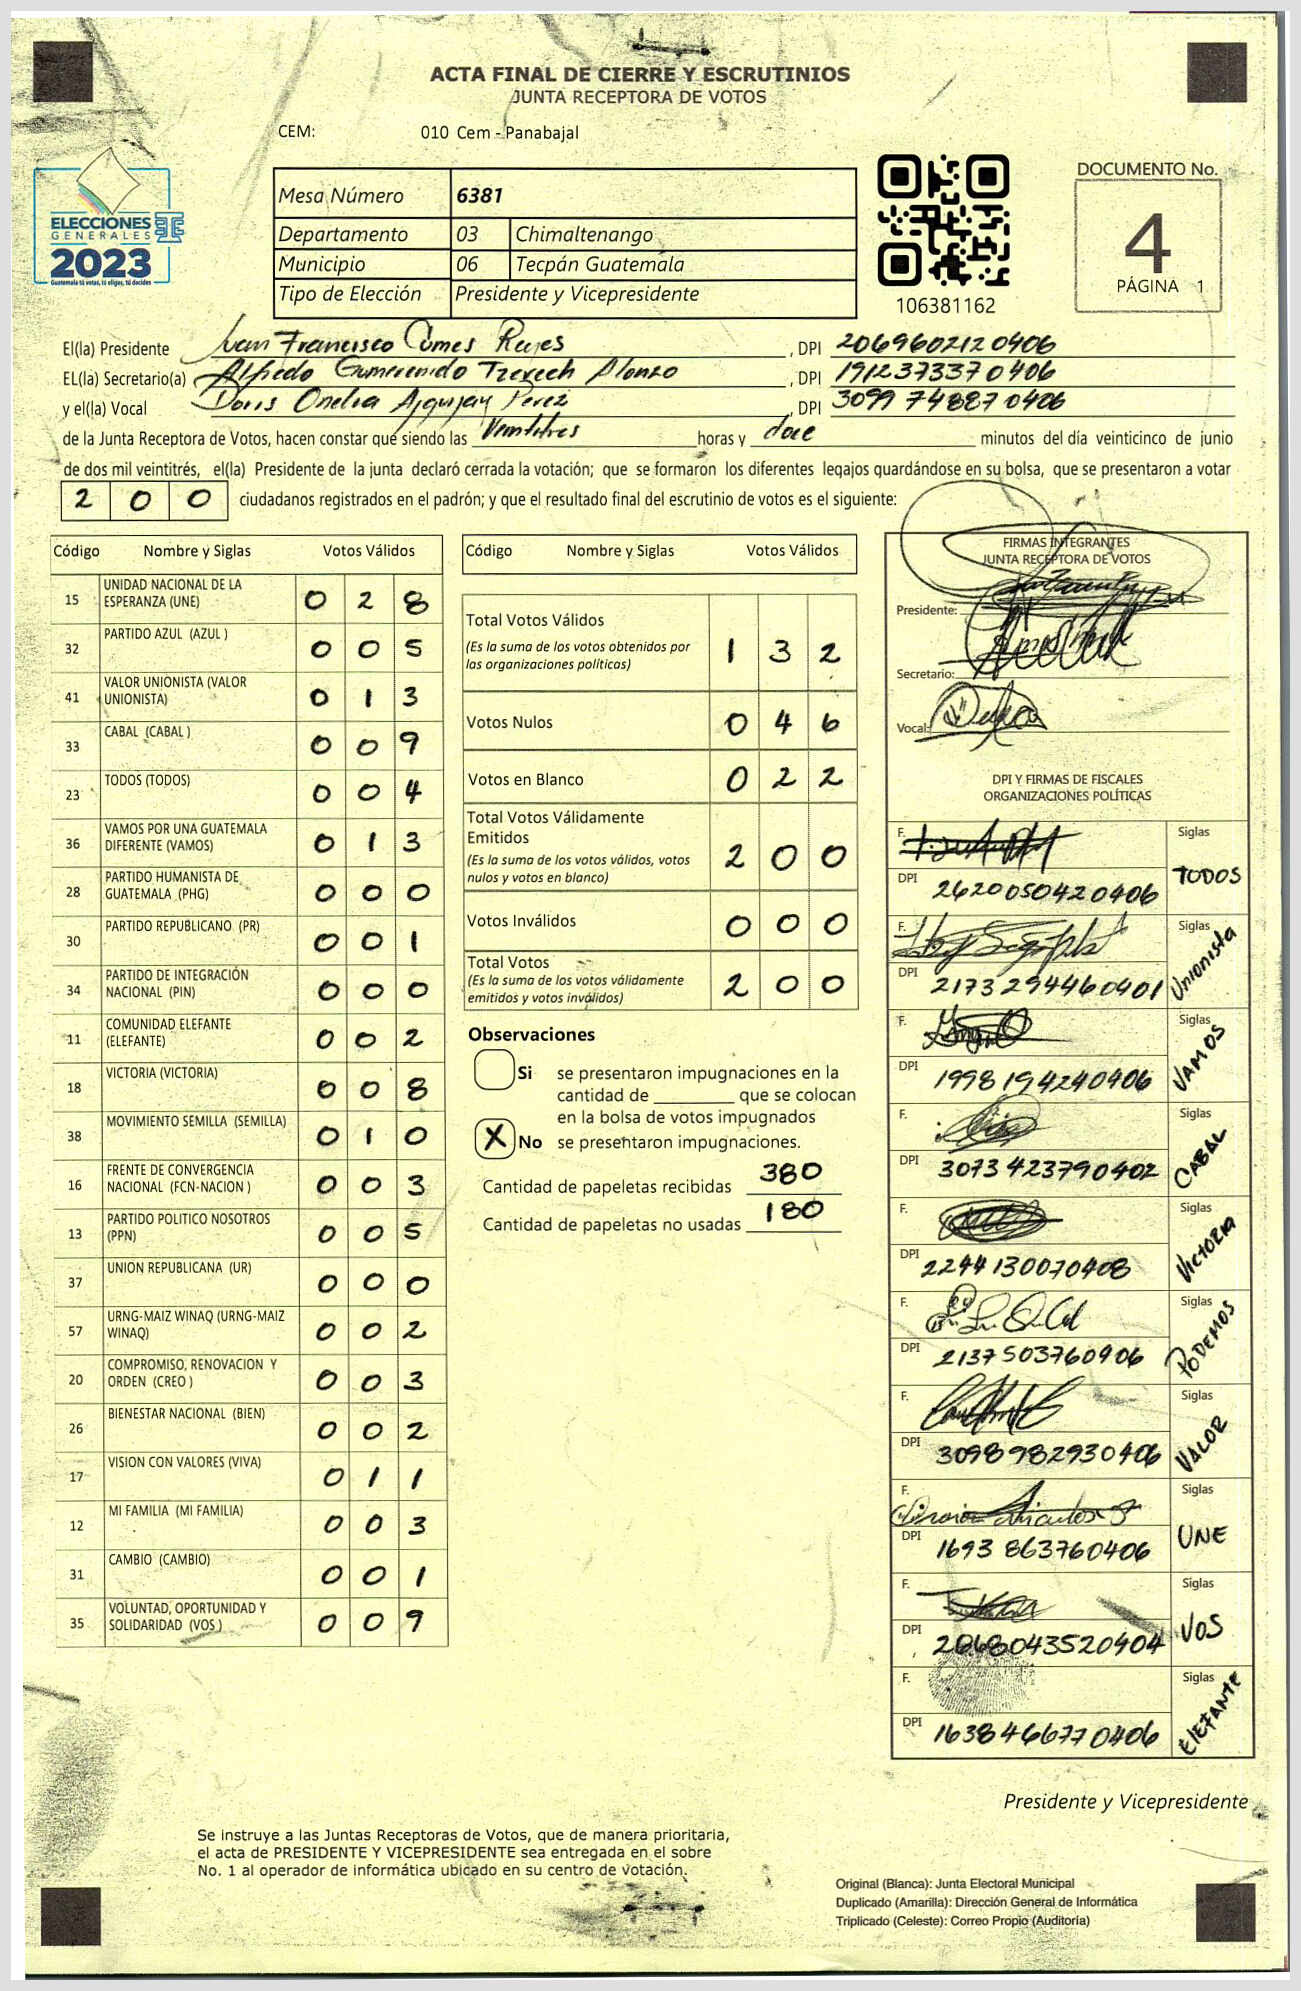 ACTA FINAL DE CIERRE Y ESCRUTINIOS
JUNTA RECEPTORA DE VOTOS
CEM: 010 Cem - Panabajal
ELECCIONES
GENERALES
2023
Guatemala tú votas, tú eliges, tú decides
Mesa Número 6381
Departamento 03 Chimaltenango
Municipio 06 Tecpán Guatemala
Tipo de Elección Presidente y Vicepresidente
106381162
DOCUMENTO No.
4
PÁGINA 1
El(la) Presidente Ivan Francisco Comes Reyes , DPI 2069602120406
EL(la) Secretario(a) Alfredo Alonzo , DPI 1912373370406
y el(la) Vocal Doris Onelia Ajquijay Perez , DPI 3099 748870406
de la Junta Receptora de Votos, hacen constar que siendo las Veintitres horas y doce minutos del día veinticinco de junio
de dos mil veintitrés, el(la) Presidente de la junta declaró cerrada la votación; que se formaron los diferentes legajos guardándose en su bolsa, que se presentaron a votar
2 0 0 ciudadanos registrados en el padrón; y que el resultado final del escrutinio de votos es el siguiente:
Código Nombre y Siglas Votos Válidos
15 UNIDAD NACIONAL DE LA ESPERANZA (UNE) 0 2 8
32 PARTIDO AZUL (AZUL ) 0 0 5
41 VALOR UNIONISTA (VALOR UNIONISTA) 0 1 3
33 CABAL (CABAL ) 0 0 9
23 TODOS (TODOS) 0 0 4
36 VAMOS POR UNA GUATEMALA DIFERENTE (VAMOS) 0 1 3
28 PARTIDO HUMANISTA DE GUATEMALA (PHG) 0 0 0
30 PARTIDO REPUBLICANO (PR) 0 0 1
34 PARTIDO DE INTEGRACIÓN NACIONAL (PIN) 0 0 0
11 COMUNIDAD ELEFANTE (ELEFANTE) 0 0 2
18 VICTORIA (VICTORIA) 0 0 8
38 MOVIMIENTO SEMILLA (SEMILLA) 0 1 0
16 FRENTE DE CONVERGENCIA NACIONAL (FCN-NACION ) 0 0 3
13 PARTIDO POLITICO NOSOTROS (PPN) 0 0 5
37 UNION REPUBLICANA (UR) 0 0 0
57 URNG-MAIZ WINAQ (URNG-MAIZ WINAQ) 0 0 2
20 COMPROMISO, RENOVACION Y ORDEN (CREO ) 0 0 3
26 BIENESTAR NACIONAL (BIEN) 0 0 2
17 VISION CON VALORES (VIVA) 0 1 1
12 MI FAMILIA (MI FAMILIA) 0 0 3
31 CAMBIO (CAMBIO) 0 0 1
35 VOLUNTAD, OPORTUNIDAD Y SOLIDARIDAD (VOS ) 0 0 9
Código Nombre y Siglas Votos Válidos
Total Votos Válidos 1 3 2
(Es la suma de los votos obtenidos por
las organizaciones políticas)
Votos Nulos 0 4 6
Votos en Blanco 0 2 2
Total Votos Válidamente
Emitidos 2 0 0
(Es la suma de los votos válidos, votos
nulos y votos en blanco)
Votos Inválidos 0 0 0
Total Votos 2 0 0
(Es la suma de los votos válidamente
emitidos y votos inválidos)
Observaciones
Si se presentaron impugnaciones en la
cantidad de ________ que se colocan
en la bolsa de votos impugnados
X No se presentaron impugnaciones.
Cantidad de papeletas recibidas 380
Cantidad de papeletas no usadas 180
FIRMAS INTEGRANTES
JUNTA RECEPTORA DE VOTOS
Presidente:
Secretario:
Vocal:
DPI Y FIRMAS DE FISCALES
ORGANIZACIONES POLÍTICAS
F. Siglas TODOS
DPI 2620050420406
F. Siglas Unionista
DPI 2173294460401
F. Siglas VAMOS
DPI 1998194240406
F. Siglas CABAL
DPI 3073423790402
F. Siglas VICTORIA
DPI 2244130070408
F. Siglas PODEMOS
DPI 2137503760906
F. Siglas VALOR
DPI 3098982930406
F. Siglas UNE
DPI 1693 863760406
F. Siglas VOS
DPI 2068043520404
F. Siglas ELEFANTE
DPI 1638466770406
Presidente y Vicepresidente
Se instruye a las Juntas Receptoras de Votos, que de manera prioritaria,
el acta de PRESIDENTE Y VICEPRESIDENTE sea entregada en el sobre
No. 1 al operador de informática ubicado en su centro de votación.
Original (Blanca): Junta Electoral Municipal
Duplicado (Amarilla): Dirección General de Informática
Triplicado (Celeste): Correo Propio (Auditoría)